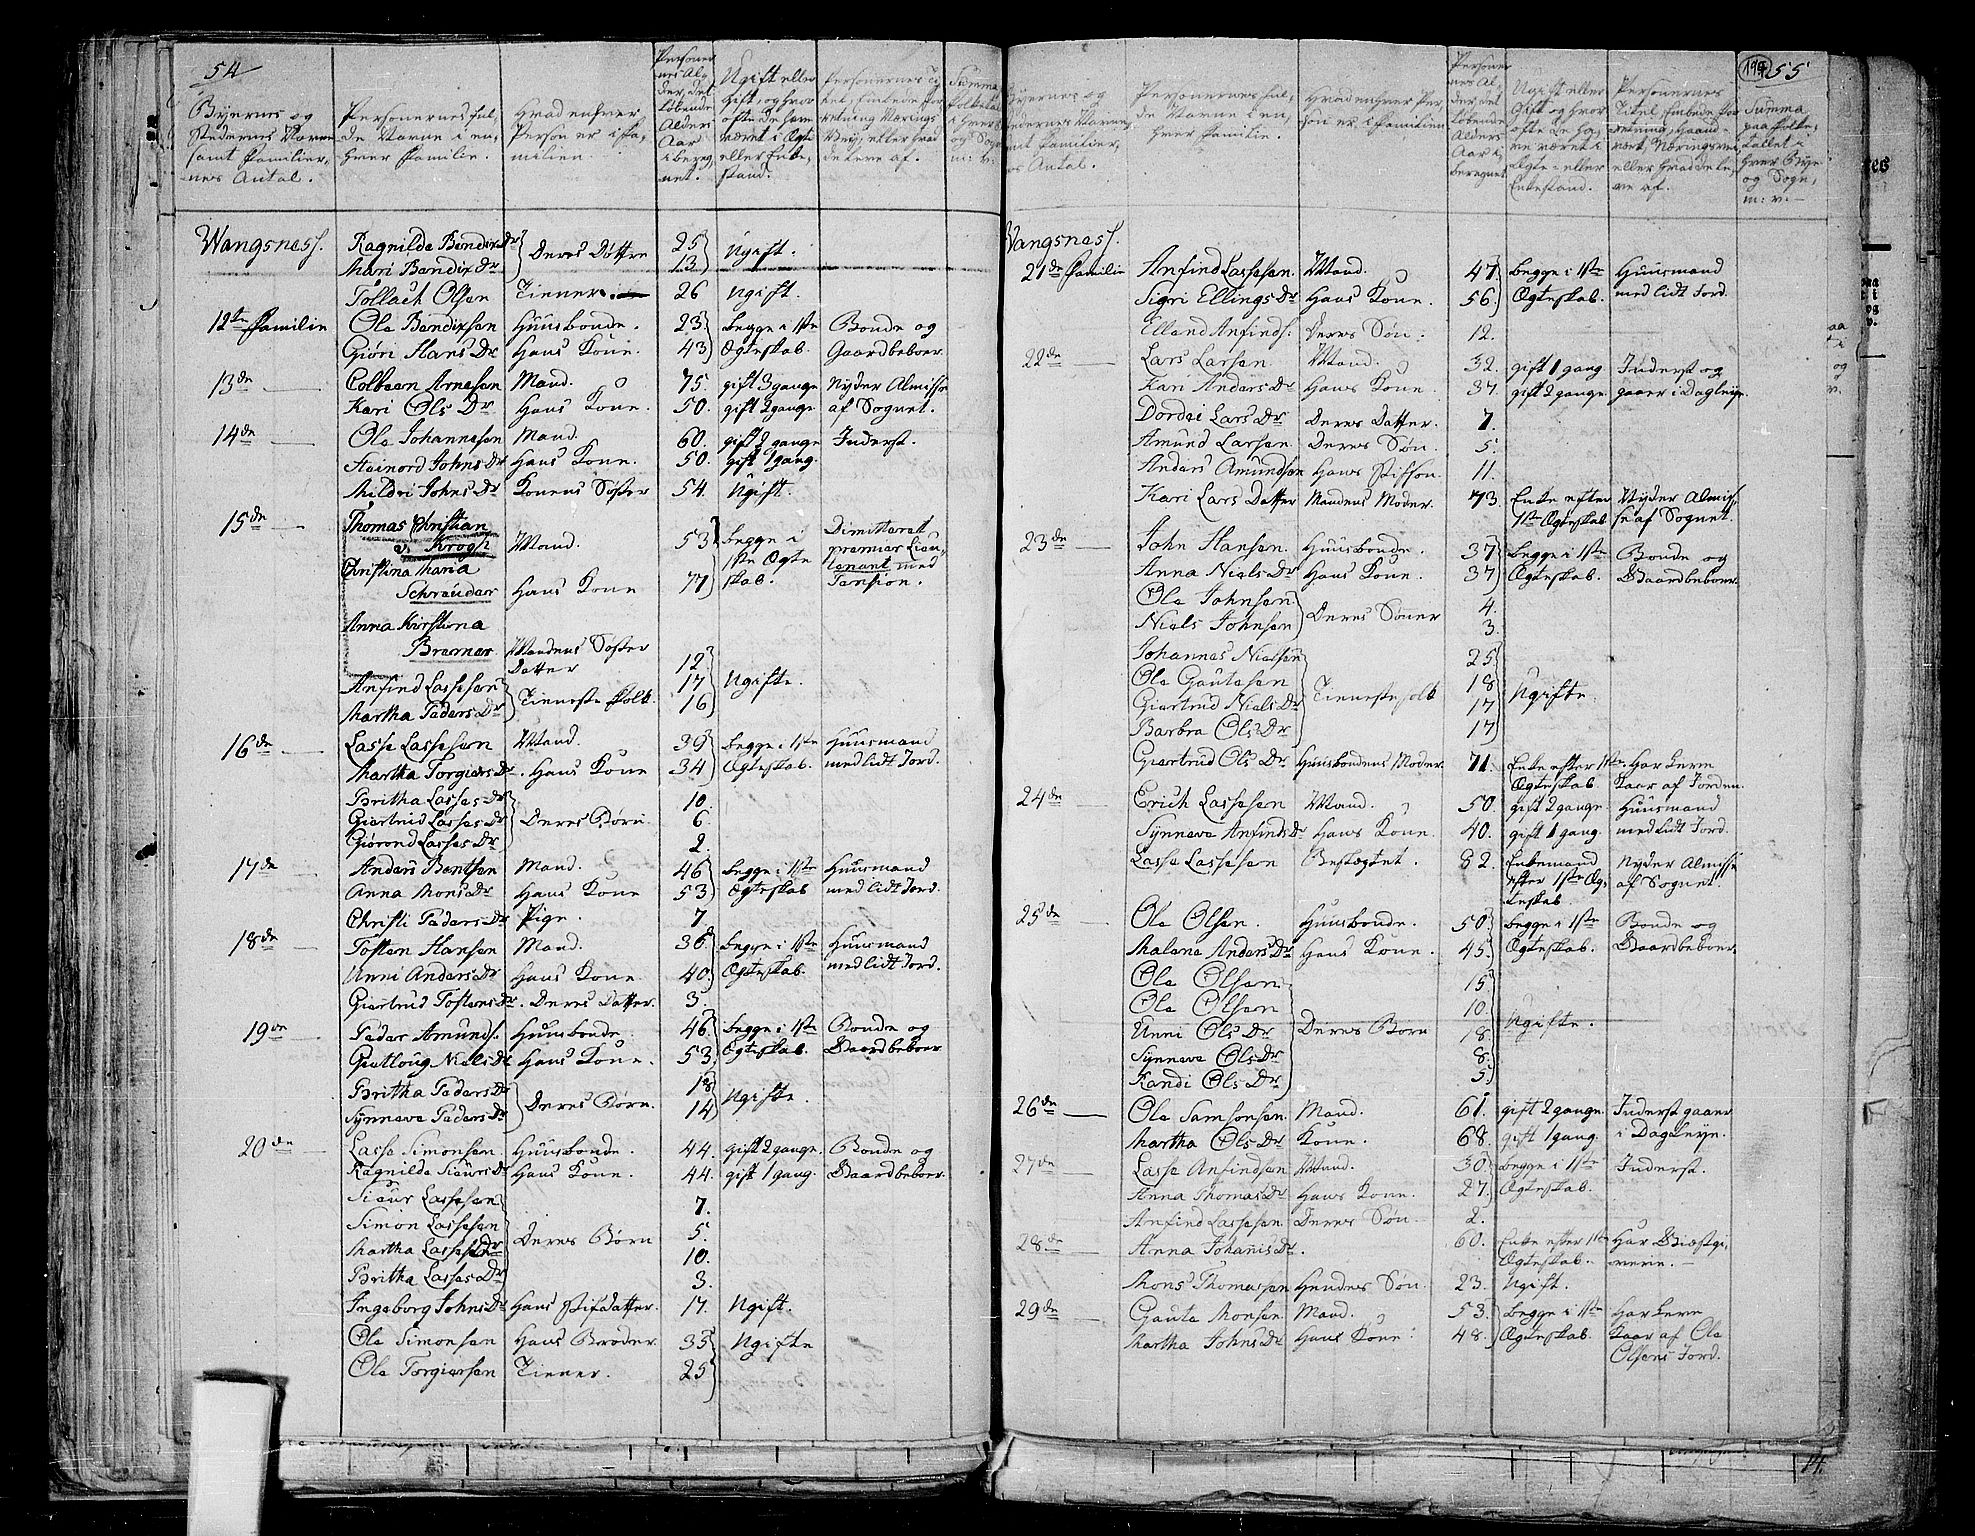 54
Byernes og Stedernes Navne samt Familiernes Antal.
Personernes fulde Navne i enhver Familie.
Hvad enhver Person er i Familien
Personernes Alder, det løbende Alders Aar iberegnet.
Ugift eller gift, og hvor ofte de have været i Ægte eller Enkestand.
Wangsness.
Ragnilda Bendix Dr 25 Ugift.
Mari Bendix Dr Deres Døttre 13
Tollach Olsen Tiener. 26 Ugift.
12te Familie Ole Bendixsen Huusbonde. 23. begge i 1ste Bonde og
Giøri Hans Dr Hans Kone. 43 Ægteskab. Gaardbeboer.
13de Colbeen Arnesen Mand. 75. gift 3 gange Nyder Almisse
Kari Ols Dr Hans Kone. 50. gift 2 gange af Sognet.
14de Ole Johannesen Mand. 60. gift 2 gange Inderst.
Steinord Johns Dr Hans Kone. 50. gift 1 gang.
Mildri Johns Dr Konens Søster 54. Ugift.
15de Thomas Christian
v. Krogh Mand. 53 begge i 1ste Ægteskab. Dimitteret premier Lieutenant med Pension.
Christina Maria
Schrøuder Hans Kone 77
Anna Kirstina
Bremer Mandens Søster Datter 12
Anfind Lassesen 17 Ugifte.
Martha Peders Dr Tieneste Folk. 16
16de Lasse Lassesen Mand. 39 begge i 1ste Huusmand
Martha Torgiers Dr. Hans Kone 34 Ægteskab. med lidt Jord.
Britha Lasses Dr 10.
Giertrud Lasses Dr Deres Børn 6.
Giørond Lasses Dr 2.
17de Anders Bentsen Mand. 46 begge i 1ste Huusmand
Anna Mons Dr Hans Kone 53 Ægteskab med lidt Jord.
Christi Peders Dr Pige. 7.
18de Tosten Hansen Mand. 36 begge i 1ste Huusmand
Unni Anders Dr Hans Kone 40 Ægteskab. med lidt Jord.
Giertrud Tostens Dr. Deres Datter. 3.
19de Peder Amunds. Huusbonde. 46 begge i 1ste Bonde og
Gutloug Niels Dr Hans Kone. 53 Ægteskab. Gaardbeboer
Britha Peders Dr 18
Synneve Peders Dr Deres Børn. 14 Ugifte.
20de Lasse Simonsen Huusbonde. 44. gift 2 gange Bonde og
Ragnilda Siurs Dr Hans Kone. 44. gift 1 gang. Gaardbeboer.
Siur Lassesen 7.
Simon Lassesen 5.
Martha Lasses Dr Deres Børn 10.
Britha Lasses Dr 3.
Ingeborg Johns Dr Hans Stifdatter. 17. Ugift.
Ole Simonsen Hans Broder. 35 Ugifte
Ole Torgiersen Tiener. 25
55
Personernes fulde Navne i enhver Familie.
Hvad enhver Person er i Familien
Ugift eller Gift og hvor ofte de have været i Ægte- eller Enkestand.
Summa paa Folketallet i hver Bye og Sogn, m: v.
Wangsness.
21de Familie Anfind Lassesen Mand. 47. begge i 1ste Huusmand
Sigri Ellings Dr Hans Kone. 56. Ægteskab. med lidt Jord.
Elland Anfinds. Deres Søn. 12.
22de Lars Larsen Mand. 32. gift 1 gang Inderst og
Kari Anders Dr Hans Kone. 37. gift 2 gange. gaaer i Dagleye.
Dordei Lars Dr Deres Datter. 7.
Amund Larsen Deres Søn. 5.
Anders Amundsen Hans Stifsøn. 11.
Kari Lars Datter Mandens Moder. 73. Enke efter Nyder Almis-
1ste Ægteskab se af Sognet.
23de John Hansen Huusbonde. 37 begge i 1ste Bonde og
Anna Niels Dr Hans Kone. 37 Ægteskab. Gaardbeboer.
Ole Johnsen 4.
Niels Johnsen Deres Sønner 3.
Johannes Nielsen 25
Ole Gautesen 18
Giertrud Niels Dr Tienestefolk 17 Ugifte.
Barbra Ols Dr 17
Giertrud Ols Dr Huusbondens Moder. 71. Enke efter 1ste Har leve
Ægteskab. Kaar af Jorden.
24de Erich Lassesen Mand. 50. gift 2 gange Huusmand
Synneve Anfinds Dr Hans Kone. 40. gift 1 gang. med lidt Jord.
Lasse Lassesen Beslægtet. 82. Enkemand Nyder Almisse
efter 1ste Æg- af Sognet.
teskab.
25de Ole Olsen. Huusbonde. 50. begge i 1ste Bonde og
Malene Anders Dr Hans Kone. 45. Ægteskab. Gaardbeboer.
Ole Olsen 15
Ole Olsen 10.
Unni Ols Dr Deres Børn 18 Ugifte.
Synneve Ols Dr 8.
Randi Ols Dr 5
26de Ole Samsonsen Mand. 61. gift 2 gange. Inderst gaaer
Martha Ols Dr Kone. 68. gift 1 gang. i Dagleye.
27de Lasse Anfindsen Mand. 30. begge i 1ste Inderst.
Anna Thomas Dr Hans Kone. 27. Ægteskab.
Anfind Lassesen Deres Søn. 2.
28de Anna Johanis Dr. 60. Enke efter 1ste Har
Ægteskab.
Mons Thomassen Hendes Søn. 23. Ugift.
29de Gaute Monsen Mand. 53. begge i 1ste Har leve
Martha Johns Dr Hans Kone. 48. Ægteskab. Kaar af Ole
Olsens Jord.
14.